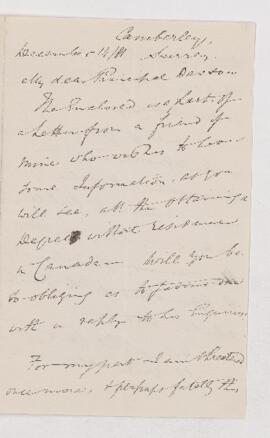 Camberley,
December 14/81 Surrey.
My dear Principal Dawson
The Enclosed is a part of
a letter from a friend of
mine who wishes to have
some Information, as you
will see, abt the obtaining a
Degree without residence
in Canada. Will you be
so obliging as to favour me
with a reply to his Enquiries
For my part I am threatened
once more, & perhaps fatally this